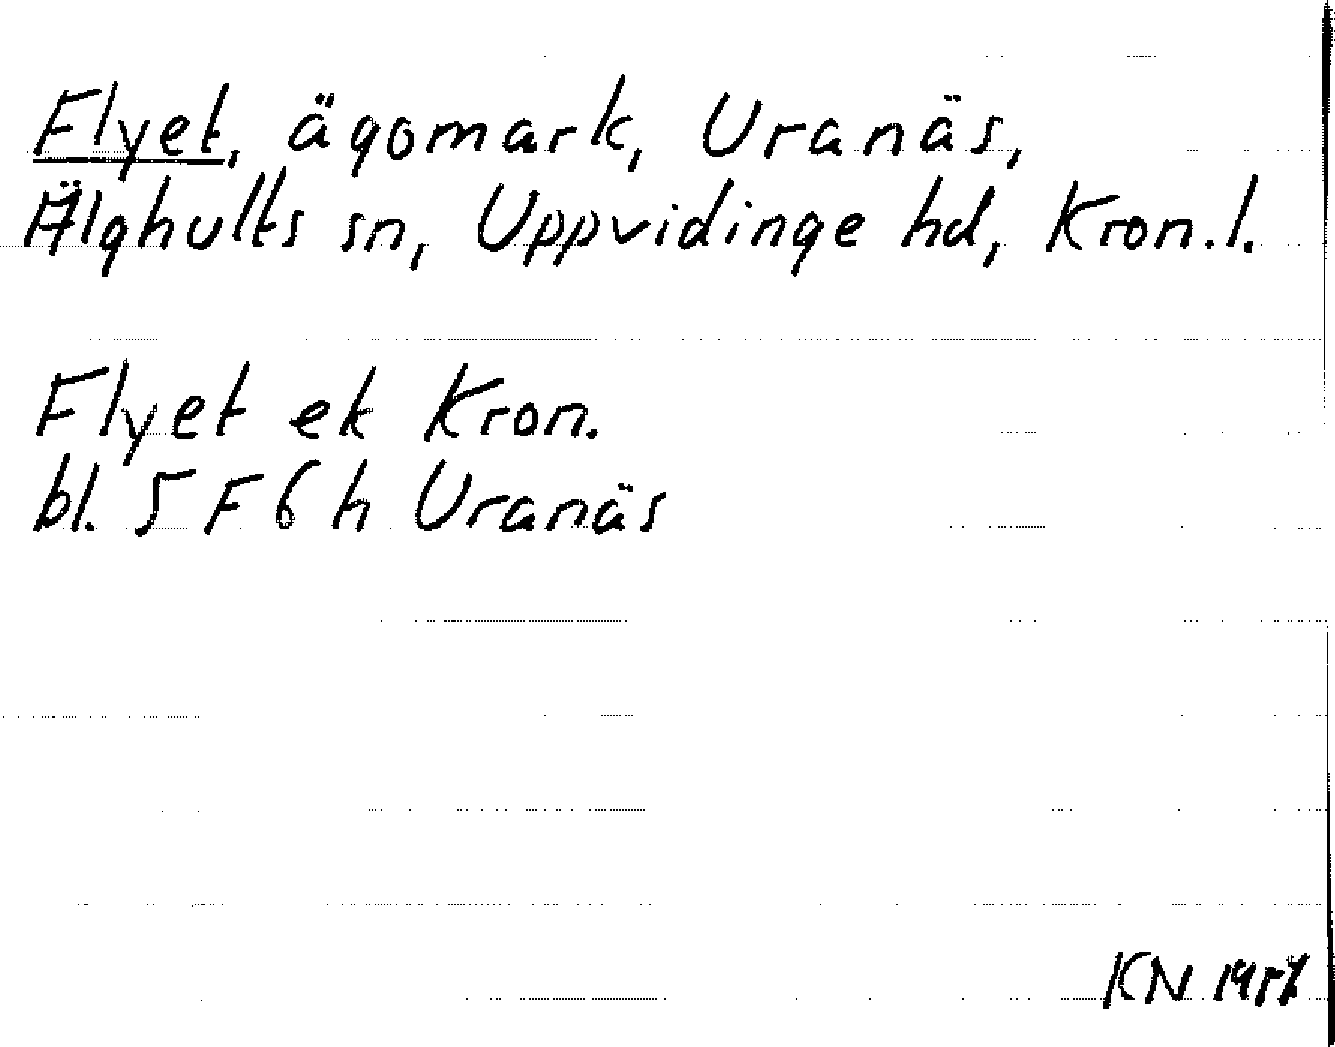 Flyet, ägomark, Uranäs,
Älghults sn, Uppvidinge hd, Kron.l.
Flyet ek Kron.
bl. 5 F 6 h Uranäs
KN